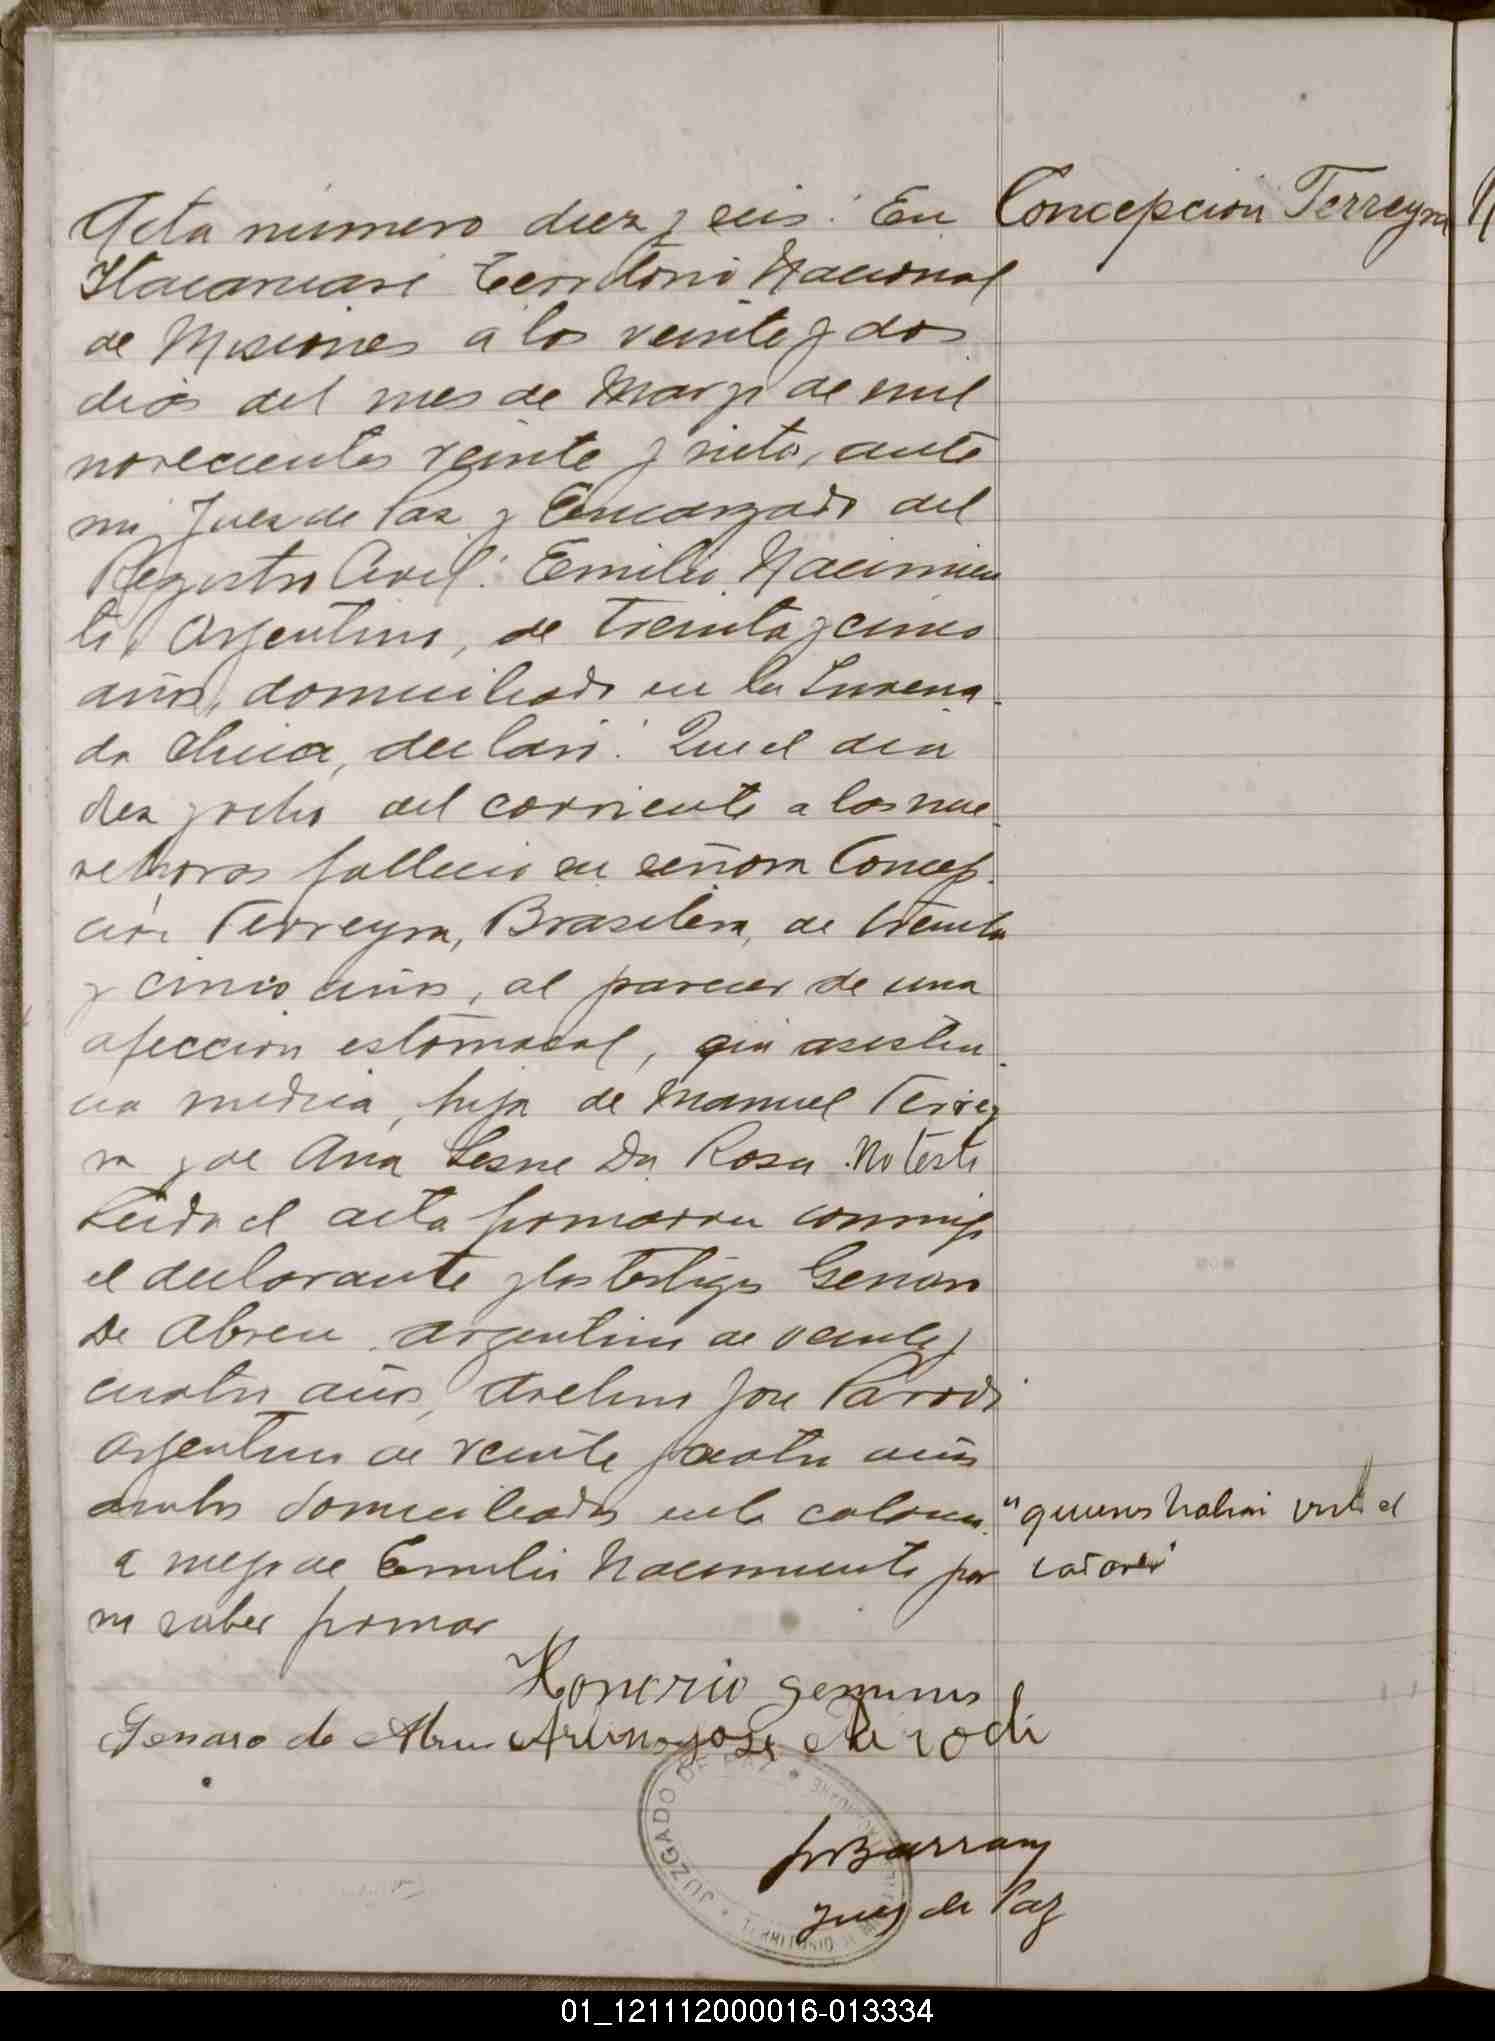 Acta número diez y seis: En
Itacaruaré Territorio Nacional
de Misiones a los veinte y dos
dias del mes de Marzo de mil
novecientos veinte y siete, ante
mi Juez de Paz y Encargado del
Registro Civil: Emilio Nacimien
to, Argentino, de treinta y cinco
años, domiciliado en la
da Chica, declaró: Que el dia
diez y ocho del corriente a las nue
ve horas fallecio su señora Concep
ción Terreyra, Brasilera, de treinta
y cinco años, al parecer de una
afeccion estomacal, sin asisten
cia medica, hija de Manuel Terrey
ra y de Ana Da Rosa. No testó
Leida el acta firmaron conmigo
el declarante y los testigos Genaro
De Abreu, argentino de veinte y
cuatro años, Avelino José Parodi
argentino de veinte y cuatro años
ambos domiciliados en la colonia
a ruego de Emilio Nacimiento por
no saber firmar
Honorio
Genaro de Abreu Avelino José Parodi
Juez de Paz
Concepcion Terreyra
"quienes habian visto el
cadaver"
JUZGADO DE PAZ
01_121112000016-013334